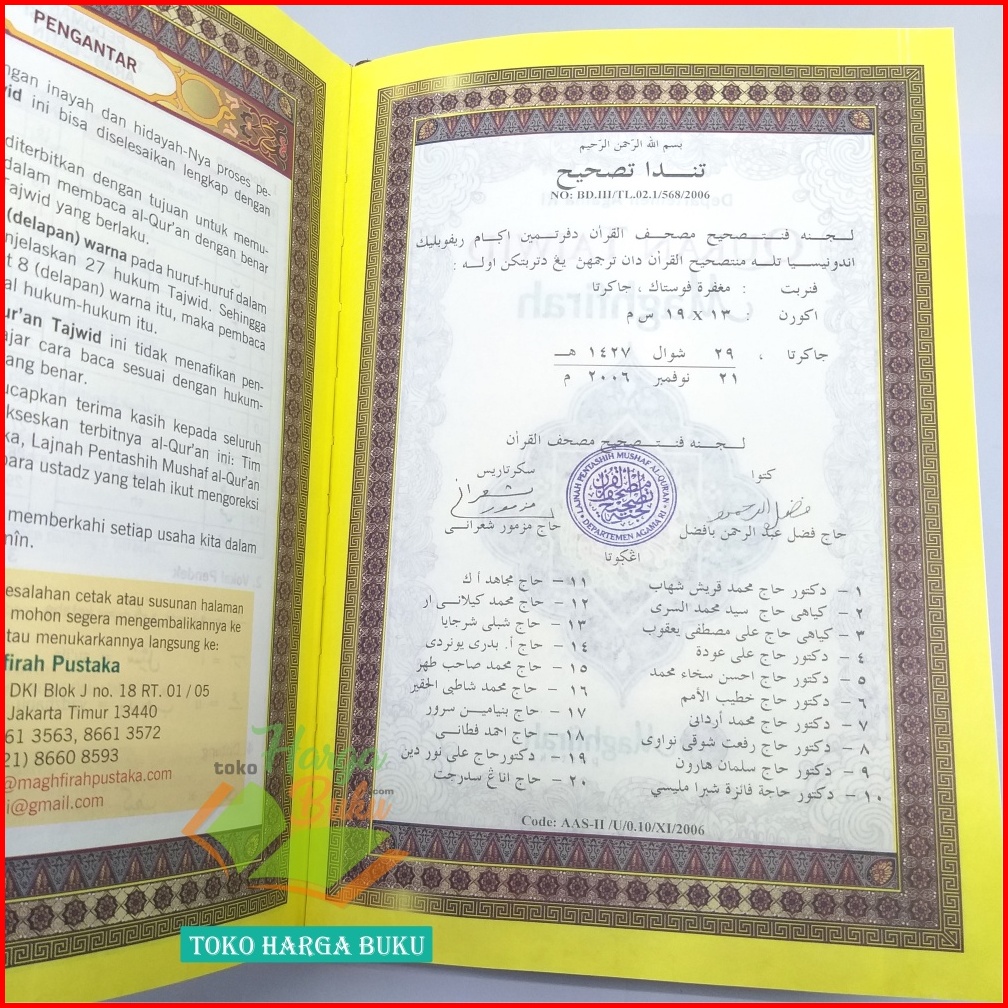 PENGANTAR
ngan inayah dan hidayah-Nya proses pe-
wid ini bisa diselesaikan lengkap dengan
diterbitkan dengan tujuan untuk memu-
dalam membaca al-Qur'an dengan benar
Tajwid yang berlaku.
(delapan) warna pada huruf-huruf dalam
njelaskan 27 hukum Tajwid. Sehingga
t 8 (delapan) warna itu, maka pembaca
al hukum-hukum itu.
ur'an Tajwid ini tidak menafikan pen-
ajar cara baca sesuai dengan hukum-
ang benar.
ucapkan terima kasih kepada seluruh
kseskan terbitnya al-Qur'an ini: Tim
ka, Lajnah Pentashih Mushaf al-Qur'an
para ustadz yang telah ikut mengoreksi
memberkahi setiap usaha kita dalam
mîn.
esalahan cetak atau susunan halaman
mohon segera mengembalikannya ke
tau menukarkannya langsung ke:
firah Pustaka
DKI Blok J no. 18 RT. 01 / 05
Jakarta Timur 13440
61 3563, 8661 3572
21) 8660 8593
@maghfirahpustaka.com
i@gmail.com
بسم الله الرّحمن الرّحيم
تندا تصحيح
NO: BD.III/TL.02.1/568/2006
لجنه فنتصحيح مصحف القرأن دفرتمين اكام ريفوبليك
اندونيسيا تله منتصحيح القرأن دان ترجمهن يڠ دتربتكن اوله :
فنربت : مغفرة فوستاك ، جاكرتا
اكورن : ١٣ x ١٩ س م
جاكرتا ، ٢٩ شوال ١٤٢٧ هـ
٢١ نوفمبر ٢٠٠٦ م
لجنه فنتصحيح مصحف القرأن
كتوا
سكرتاريس
LAJNAH PENTASHIH MUSHAF AL-QUR'AN
DEPARTEMEN AGAMA RI
حاج فضل عبد الرحمن بافضل
حاج مزمور شعرانى
اڠكوتا
١ - دكتور حاج محمد قريش شهاب
٢ - كياهى حاج سيد محمد السرى
٣ - كياهى حاج على مصطفى يعقوب
٤ - دكتور حاج على عودة
٥ - دكتور حاج احسن سخاء محمد
٦ - دكتور حاج خطيب الأمم
٧ - دكتور حاج محمد أرداني
٨ - دكتور حاج رفعت شوقي نواوى
٩ - دكتور حاج سلمان هارون
١٠ - دكتور حاجة فائزة شبرا مليسي
١١ - حاج مجاهد أ ك
١٢ - حاج محمد كيلانى ار
١٣ - حاج شبلى شرجايا
١٤ - حاج أ. بدرى يونردى
١٥ - حاج محمد صاحب طهر
١٦ - حاج محمد شاطبى الحقير
١٧ - حاج بنيامين سرور
١٨ - حاج احمد فطانى
١٩ - دكتورحاج على نور دين
٢٠ - حاج اناڠ سدرجت
Code: AAS-II /U/0.10/XI/2006
toko Harga
Buku .com
TOKO HARGA BUKU